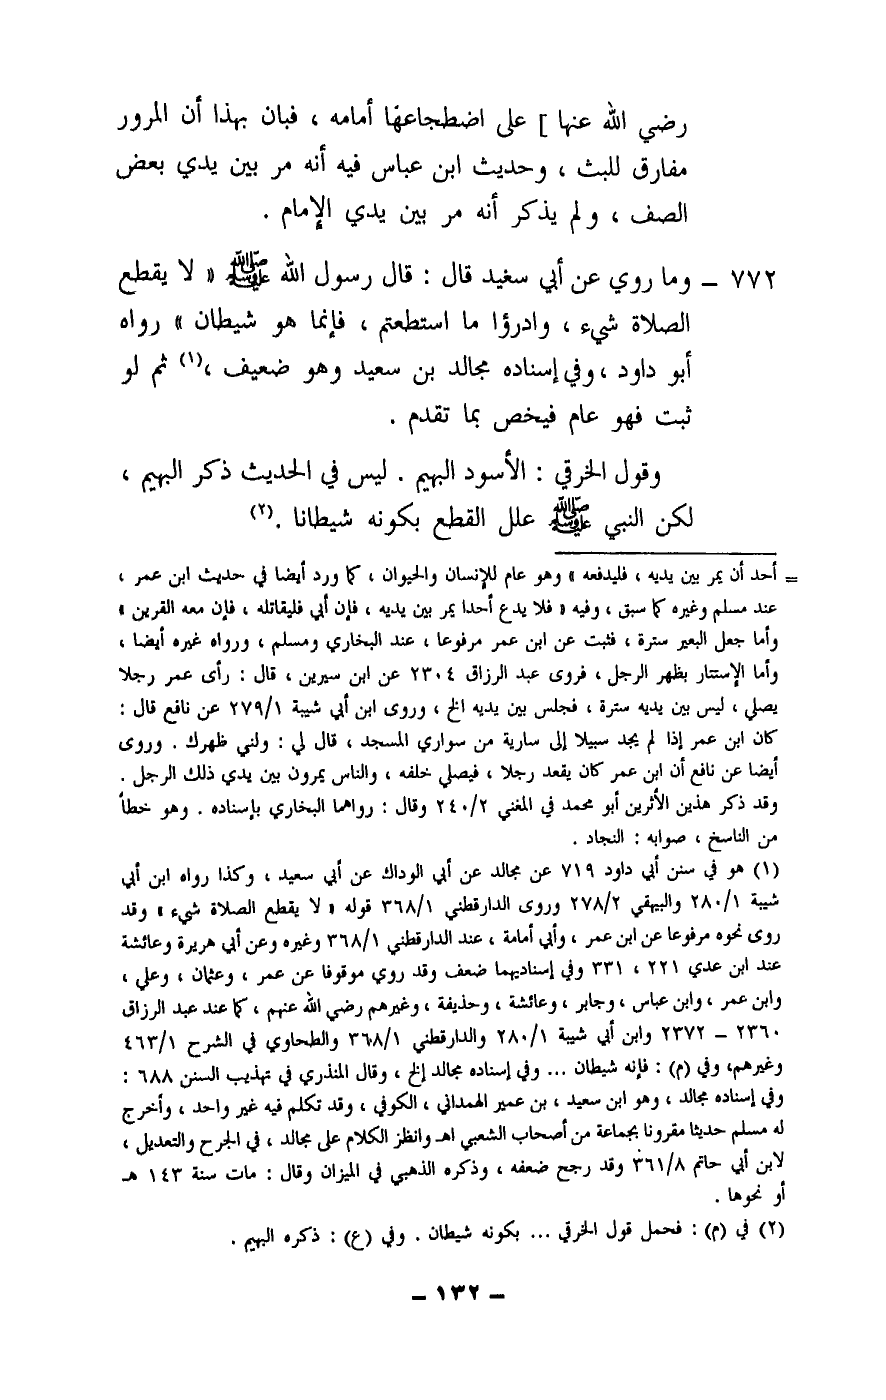 رضي الله عنها ] على اضطجاعها أمامه ، فبان بهذا أن المرور
مفارق للبث ، وحديث ابن عباس فيه أنه مر بين يدي بعض
الصف ، ولم يذكر أنه مر بين يدي الإمام .
٧٧٢ – وما روي عن أبي سعيد قال : قال رسول الله ﷺ « لا يقطع
الصلاة شيء ، وادرؤا ما استطعتم ، فإنما هو شيطان » رواه
أبو داود ، وفي إسناده مجالد بن سعيد وهو ضعيف ،(١) ثم لو
ثبت فهو عام فيخص بما تقدم .
وقول الخرقي : الأسود البهيم . ليس في الحديث ذكر البهيم ،
لكن النبي ﷺ علل القطع بكونه شيطانا .(٢)
= أحد أن يمر بين يديه ، فليدفعه » وهو عام للإنسان والحيوان ، كما ورد أيضا في حديث ابن عمر ،
عند مسلم وغيره كما سبق ، وفيه « فلا يدع أحدا يمر بين يديه ، فإن أبي فليقاتله ، فإن معه القرين »
وأما جعل البعير سترة ، فثبت عن ابن عمر مرفوعا ، عند البخاري ومسلم ، ورواه غيره أيضا ،
وأما الإستتار بظهر الرجل ، فروى عبد الرزاق ٢٣٠٤ عن ابن سيرين ، قال : رأى عمر رجلا
يصلي ، ليس بين يديه سترة ، فجلس بين يديه الخ ، وروى ابن أبي شيبة ٢٧٩/١ عن نافع قال :
كان ابن عمر إذا لم يجد سبيلا إلى سارية من سواري المسجد ، قال لي : ولني ظهرك . وروى
أيضا عن نافع أن ابن عمر كان يقعد رجلا ، فيصلي خلفه ، والناس يمرون بين يدي ذلك الرجل .
وقد ذكر هذين الأثرين أبو محمد في المغني ٢٤٠/٢ وقال : رواهما البخاري بإسناده . وهو خطأ
من الناسخ ، صوابه : النجاد .
(١) هو في سنن أبي داود ٧١٩ عن مجالد عن أبي الوداك عن أبي سعيد ، وكذا رواه ابن أبي
شيبة ٢٨٠/١ والبيهقي ٢٧٨/٢ وروى الدارقطني ٣٦٨/١ قوله « لا يقطع الصلاة شيء » وقد
روى نحوه مرفوعا عن ابن عمر ، وأبي أمامة ، عند الدارقطني ٣٦٨/١ وغيره وعن أبي هريرة وعائشة
عند ابن عدي ٢٢١ ، ٣٣١ وفي إسناديهما ضعف وقد روي موقوفا عن عمر ، وعثمان ، وعلي ،
وابن عمر ، وابن عباس ، وجابر ، وعائشة ، وحذيفة ، وغيرهم رضي الله عنهم ، كما عند عبد الرزاق
٢٣٦٠ – ٢٣٧٢ وابن أبي شيبة ٢٨٠/١ والدارقطني ٣٦٨/١ والطحاوي في الشرح ٤٦٣/١
وغيرهم، وفي (م) : فإنه شيطان ... وفي إسناده مجالد إلخ ، وقال المنذري في تهذيب السنن ٦٨٨ :
وفي إسناده مجالد ، وهو ابن سعيد ، بن عمير الهمداني ، الكوفي ، وقد تكلم فيه غير واحد ، وأخرج
له مسلم حديثا مقرونا بجماعة من أصحاب الشعبي اهـ وانظر الكلام على مجالد ، في الجرح والتعديل ،
لابن أبي حاتم ٣٦١/٨ وقد رجح ضعفه ، وذكره الذهبي في الميزان وقال : مات سنة ١٤٣ هـ
أو نحوها .
(٢) في (م) : فحمل قول الخرقي ... بكونه شيطان . وفي (ع) : ذكره البهيم .
– ١٣٢ –